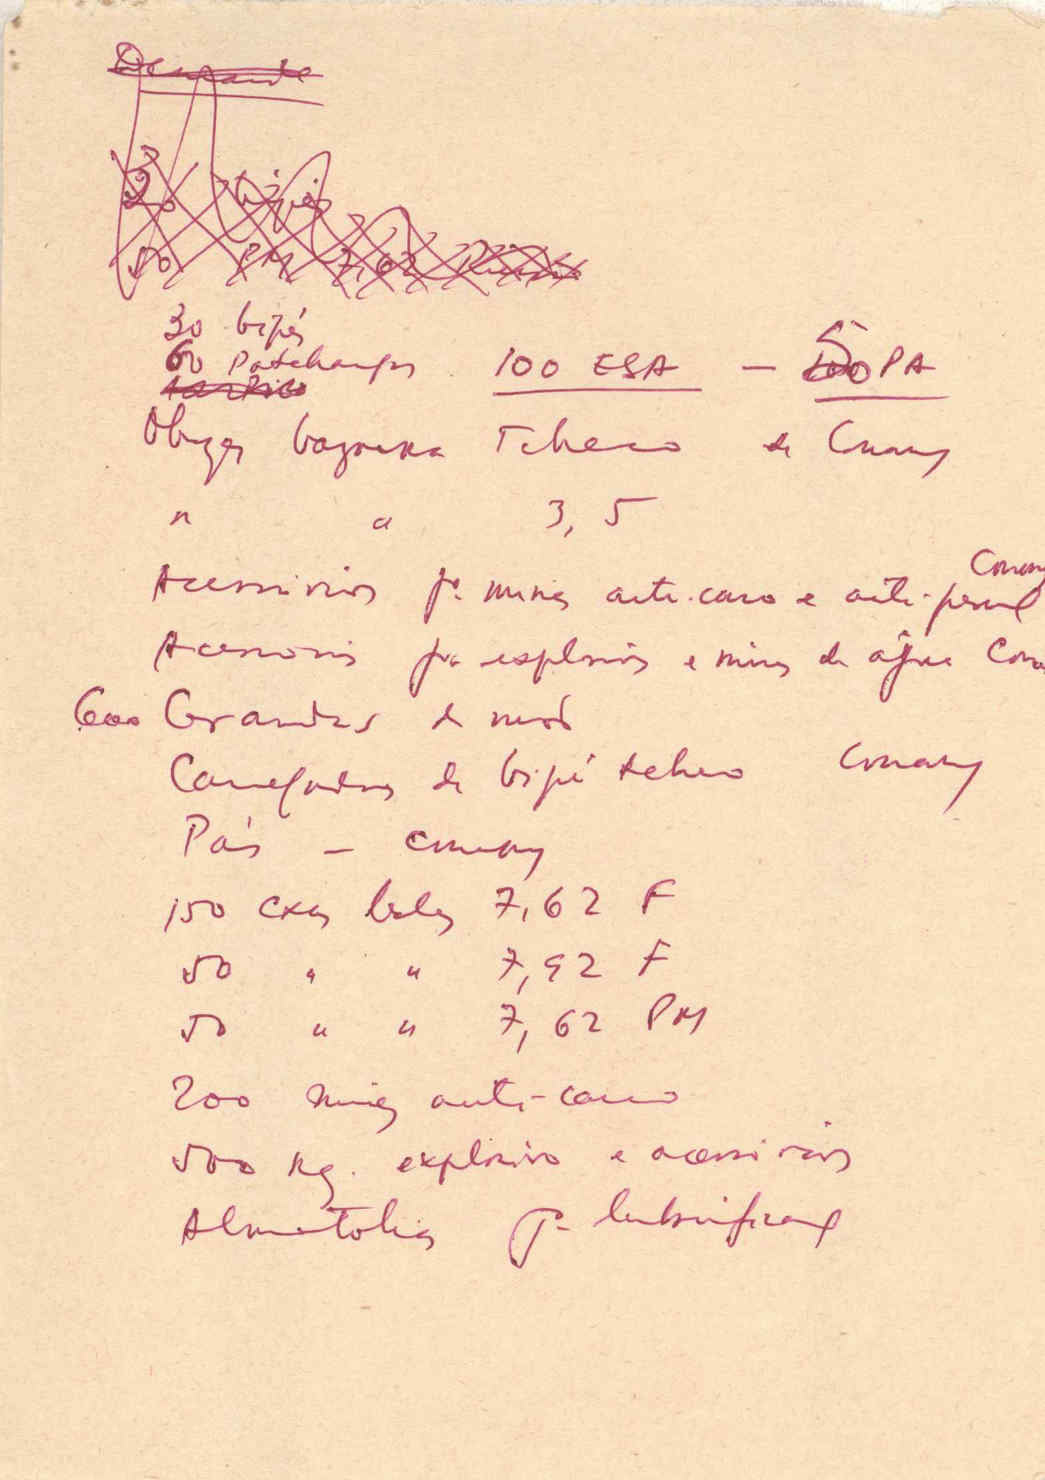 Demande
20 bipés
50 PM 7,62
30 bipés
60 Patchangas 100 ESA - 50 PA
Obuzes bazooka Tcheco de Conacry
" " 3,5
Acessórios pa. minas anti-carro e anti-pessoal Conacry
Acessórios pa explosivos e minas de água Cona
600 Granadas de mão
Carregadores de bipé tcheco Conacry
Pás - Conacry
150 cxas balas 7,62 F
50 " " 7,92 F
50 " " 7,62 PM
200 minas anti-carro
500 kg. explosivo e acessórios
Almotolias pa lubrificant